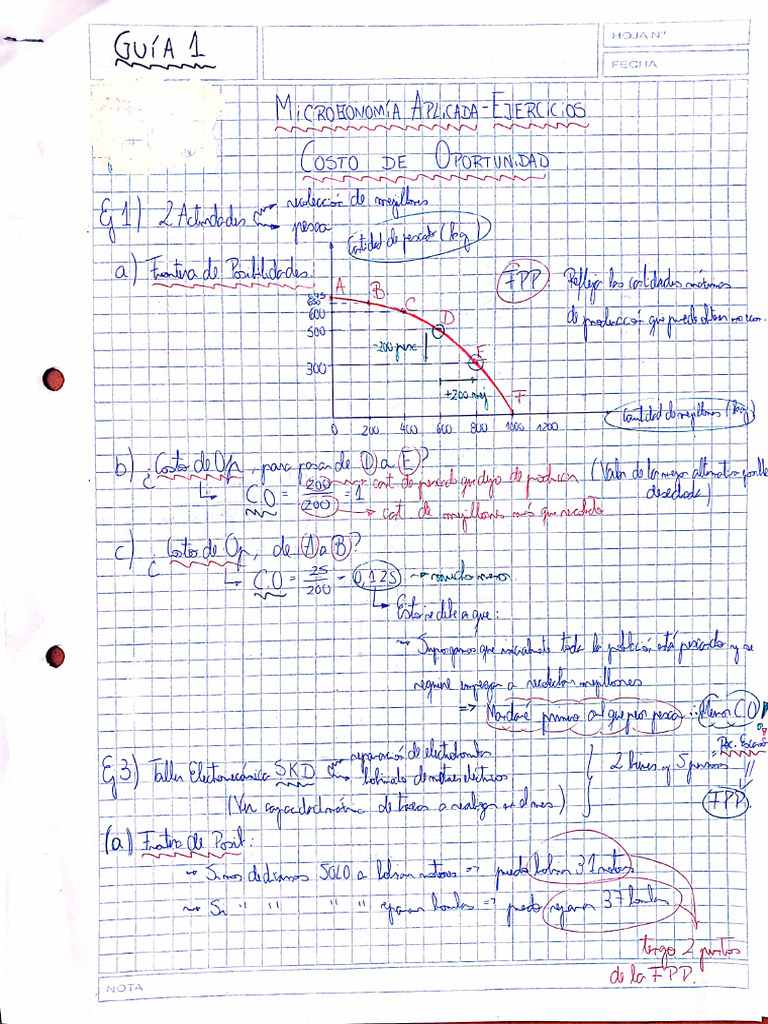 GUÍA 1
HOJA Nº
FECHA
MICROECONOMÍA APLICADA - EJERCICIOS
COSTO DE OPORTUNIDAD
Ej 1) 2 Actividades recolección de mejillones
pesca
Cantidad de pescado (kg)
a) Frontera de Posibilidades.
FPP Refleja las cantidades máximas
de producción que puedo obtener
A
B
C
D
E
F
600
500
300
-200 pesc
+200 mej
0 200 400 600 800 1000 1200
Cantidad de mejillones (kg)
b) ¿Costo de Op, para pasar de D a E?
CO = 200/200 = 1
cant. de pescado que dejo de producir (Valor de la mejor alternativa posible
desechada)
cant. de mejillones más que recolecto
c) ¿Costo de Op, de A a B?
CO = 25/200 = 0,125 mucho menor
Esto se debe a que:
Supongamos que inicialmente toda la población está pescando y se
requiere empezar a recolectar mejillones
=> Mandaré primero al que peor pesca ∴ Menor CO
Ej 3) Taller Electromecánica SKD reparación de electrobombas
bobinado de motores eléctricos
2 líneas y 5 personas
Rec. Escaso
FPP
(Ver capacidad máxima de tareas a realizar en el mes)
(a) Frontera de Posib:
Si nos dedicamos SOLO a bobinar motores => puedo bobinar 31 motores
Si " " " " reparar bombas => puedo reparar 37 bombas
tengo 2 puntos
de la FPP.
NOTA